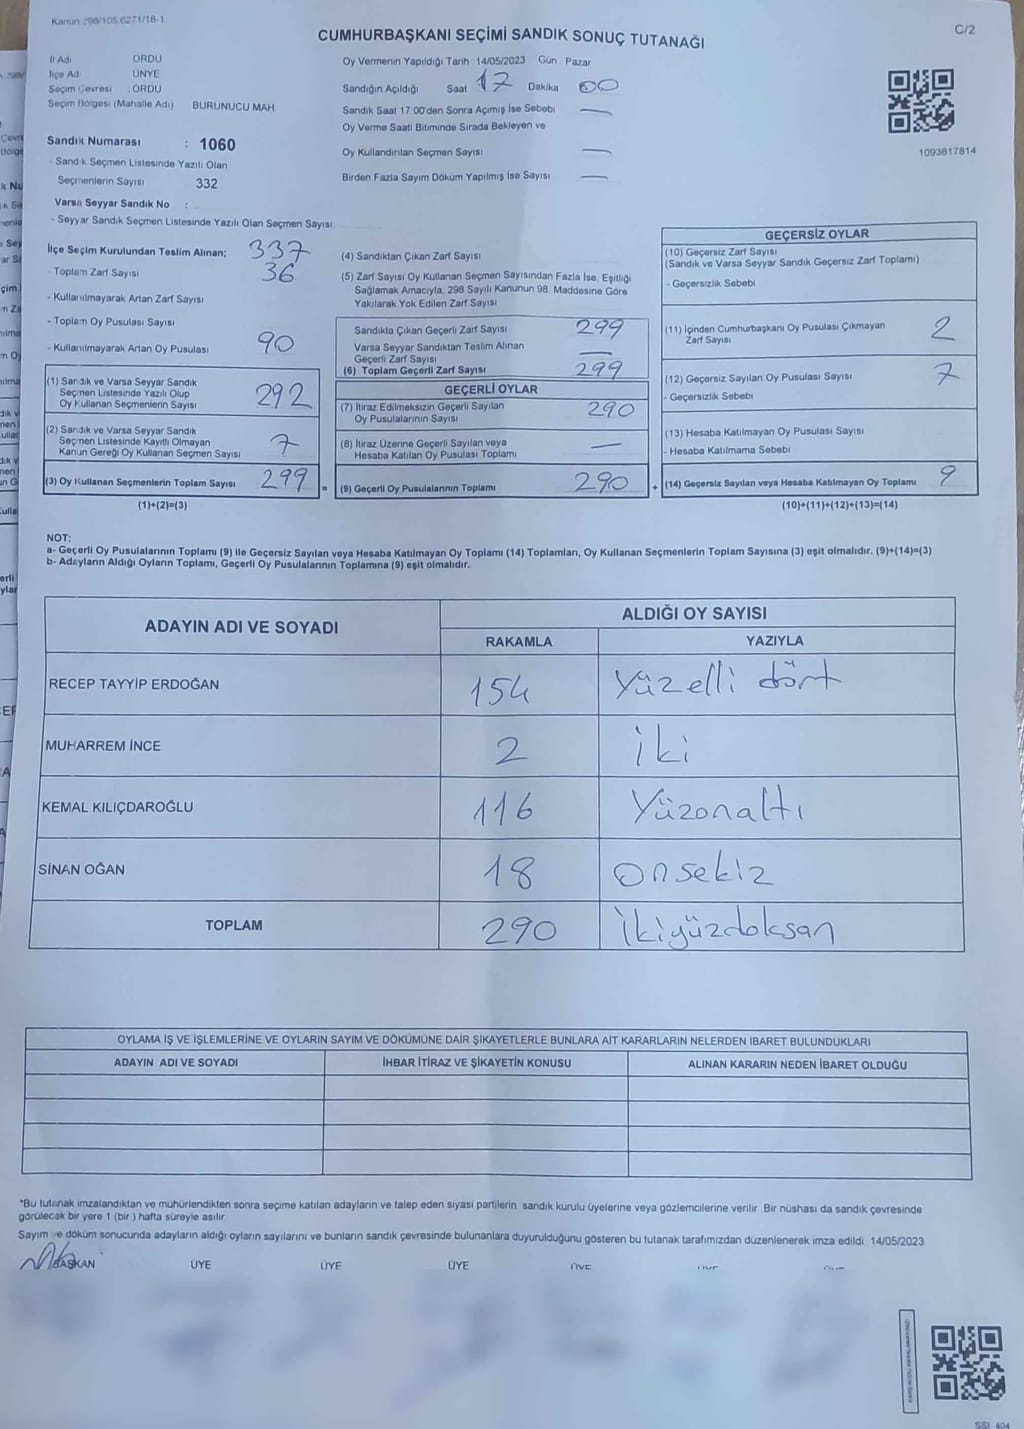 Kanun 298/105.6271/18-1
C/2
CUMHURBAŞKANI SEÇİMİ SANDIK SONUÇ TUTANAĞI
İl Adı : ORDU
İlçe Adı : ÜNYE
Seçim Çevresi : ORDU
Seçim Bölgesi (Mahalle Adı) BURUNUCU MAH.
Sandık Numarası : 1060
- Sandık Seçmen Listesinde Yazılı Olan
Seçmenlerin Sayısı 332
Varsa Seyyar Sandık No :
- Seyyar Sandık Seçmen Listesinde Yazılı Olan Seçmen Sayısı
Oy Vermenin Yapıldığı Tarih 14/05/2023 Gün Pazar
Sandığın Açıldığı Saat 17 Dakika 00
Sandık Saat 17:00'den Sonra Açımış İse Sebebi —
Oy Verme Saati Bitiminde Sırada Bekleyen ve
Oy Kullandırılan Seçmen Sayısı —
Birden Fazla Sayım Döküm Yapılmış İse Sayısı —
1093817814
İlçe Seçim Kurulundan Teslim Alınan; 337
- Toplam Zarf Sayısı 36
- Kullanılmayarak Artan Zarf Sayısı
- Toplam Oy Pusulası Sayısı
- Kullanılmayarak Artan Oy Pusulası 90
(1) Sandık ve Varsa Seyyar Sandık
Seçmen Listesinde Yazılı Olup
Oy Kullanan Seçmenlerin Sayısı 292
(2) Sandık ve Varsa Seyyar Sandık
Seçmen Listesinde Kayıtlı Olmayan
Kanun Gereği Oy Kullanan Seçmen Sayısı 7
(3) Oy Kullanan Seçmenlerin Toplam Sayısı 299 =
(1)+(2)=(3)
(4) Sandıktan Çıkan Zarf Sayısı
(5) Zarf Sayısı Oy Kullanan Seçmen Sayısından Fazla İse, Eşitliği
Sağlamak Amacıyla, 298 Sayılı Kanunun 98. Maddesine Göre
Yakılarak Yok Edilen Zarf Sayısı
Sandıkta Çıkan Geçerli Zarf Sayısı 299
Varsa Seyyar Sandıktan Teslim Alınan
Geçerli Zarf Sayısı —
(6) Toplam Geçerli Zarf Sayısı 299
GEÇERLİ OYLAR
(7) İtiraz Edilmeksizin Geçerli Sayılan
Oy Pusulalarının Sayısı 290
(8) İtiraz Üzerine Geçerli Sayılan veya
Hesaba Katılan Oy Pusulası Toplamı —
(9) Geçerli Oy Pusulalarının Toplamı 290 +
GEÇERSİZ OYLAR
(10) Geçersiz Zarf Sayısı
(Sandık ve Varsa Seyyar Sandık Geçersiz Zarf Toplamı)
- Geçersizlik Sebebi
(11) İçinden Cumhurbaşkanı Oy Pusulası Çıkmayan
Zarf Sayısı 2
(12) Geçersiz Sayılan Oy Pusulası Sayısı 7
- Geçersizlik Sebebi
(13) Hesaba Katılmayan Oy Pusulası Sayısı
- Hesaba Katılmama Sebebi
(14) Geçersiz Sayılan veya Hesaba Katılmayan Oy Toplamı 9
(10)+(11)+(12)+(13)=(14)
NOT:
a- Geçerli Oy Pusulalarının Toplamı (9) ile Geçersiz Sayılan veya Hesaba Katılmayan Oy Toplamı (14) Toplamları, Oy Kullanan Seçmenlerin Toplam Sayısına (3) eşit olmalıdır. (9)+(14)=(3)
b- Adayların Aldığı Oyların Toplamı, Geçerli Oy Pusulalarının Toplamına (9) eşit olmalıdır.
ADAYIN ADI VE SOYADI ALDIĞI OY SAYISI
RAKAMLA YAZIYLA
RECEP TAYYİP ERDOĞAN 154 Yüzelli dört
MUHARREM İNCE 2 İki
KEMAL KILIÇDAROĞLU 116 Yüzonaltı
SİNAN OĞAN 18 onsekiz
TOPLAM 290 İkiyüzdoksan
OYLAMA İŞ VE İŞLEMLERİNE VE OYLARIN SAYIM VE DÖKÜMÜNE DAİR ŞİKAYETLERLE BUNLARA AİT KARARLARIN NELERDEN İBARET BULUNDUKLARI
ADAYIN ADI VE SOYADI İHBAR İTİRAZ VE ŞİKAYETİN KONUSU ALINAN KARARIN NEDEN İBARET OLDUĞU
*Bu tutanak imzalandıktan ve mühürlendikten sonra seçime katılan adayların ve talep eden siyasi partilerin sandık kurulu üyelerine veya gözlemcilerine verilir. Bir nüshası da sandık çevresinde
görülecek bir yere 1 (bir) hafta süreyle asılır.
Sayım ve döküm sonucunda adayların aldığı oyların sayılarını ve bunların sandık çevresinde bulunanlara duyurulduğunu gösteren bu tutanak tarafımızdan düzenlenerek imza edildi. 14/05/2023
BAŞKAN ÜYE ÜYE ÜYE ÜYE
SSI 404